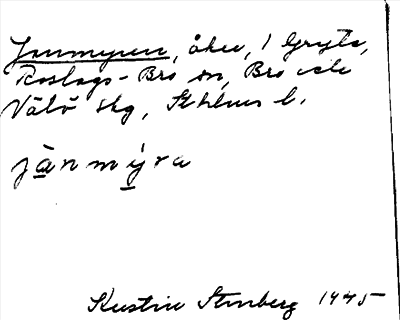 Janmyren, åker, i Gryta,
Roslags-Bro sn, Bro och
Vätö skg, Sthlms l.
janmyra
Kerstin Stenberg 1945